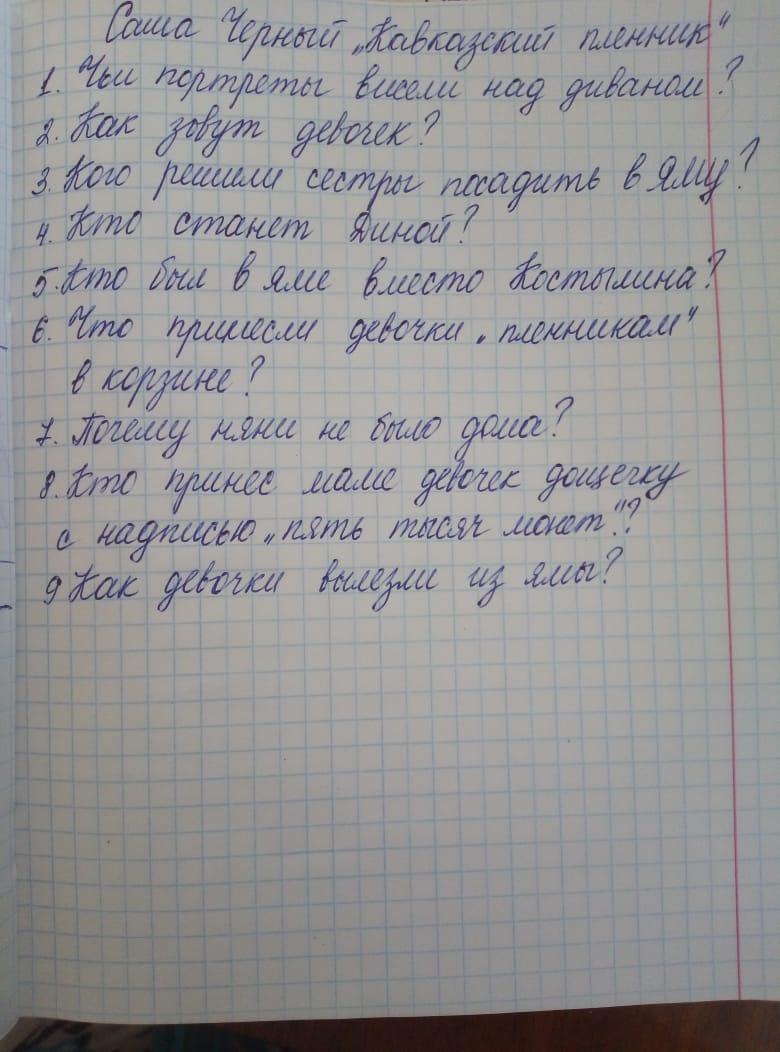 Саша Черный „Кавказский пленник"
1. Чьи портреты висели над диваном?
2. Как зовут девочек?
3. Кого решили сестры посадить в яму?
4. Кто станет Диной?
5. Кто был в яме вместо Костылина?
6. Что принесли девочки „пленникам"
в корзине?
7. Почему няни не было дома?
8. Кто принес маме девочек дощечку
с надписью „пять тысяч монет"?
9 Как девочки вылезли из ямы?